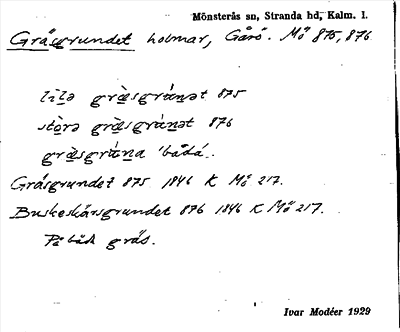 Mönsterås sn, Stranda hd, Kalm. l.
Gräsgrundet holmar, Gåsö. Mö 875, 876
lìlə græ̀sgrúnət 875
stòrə græ̀sgrúnət 876
græ̀sgrúna 'båda'.
Gräsgrundet 875 1846 K Mö 217.
Buskeskärsgrundet 876 1846 K Mö 217.
På båda gräs.
Ivar Modéer 1929